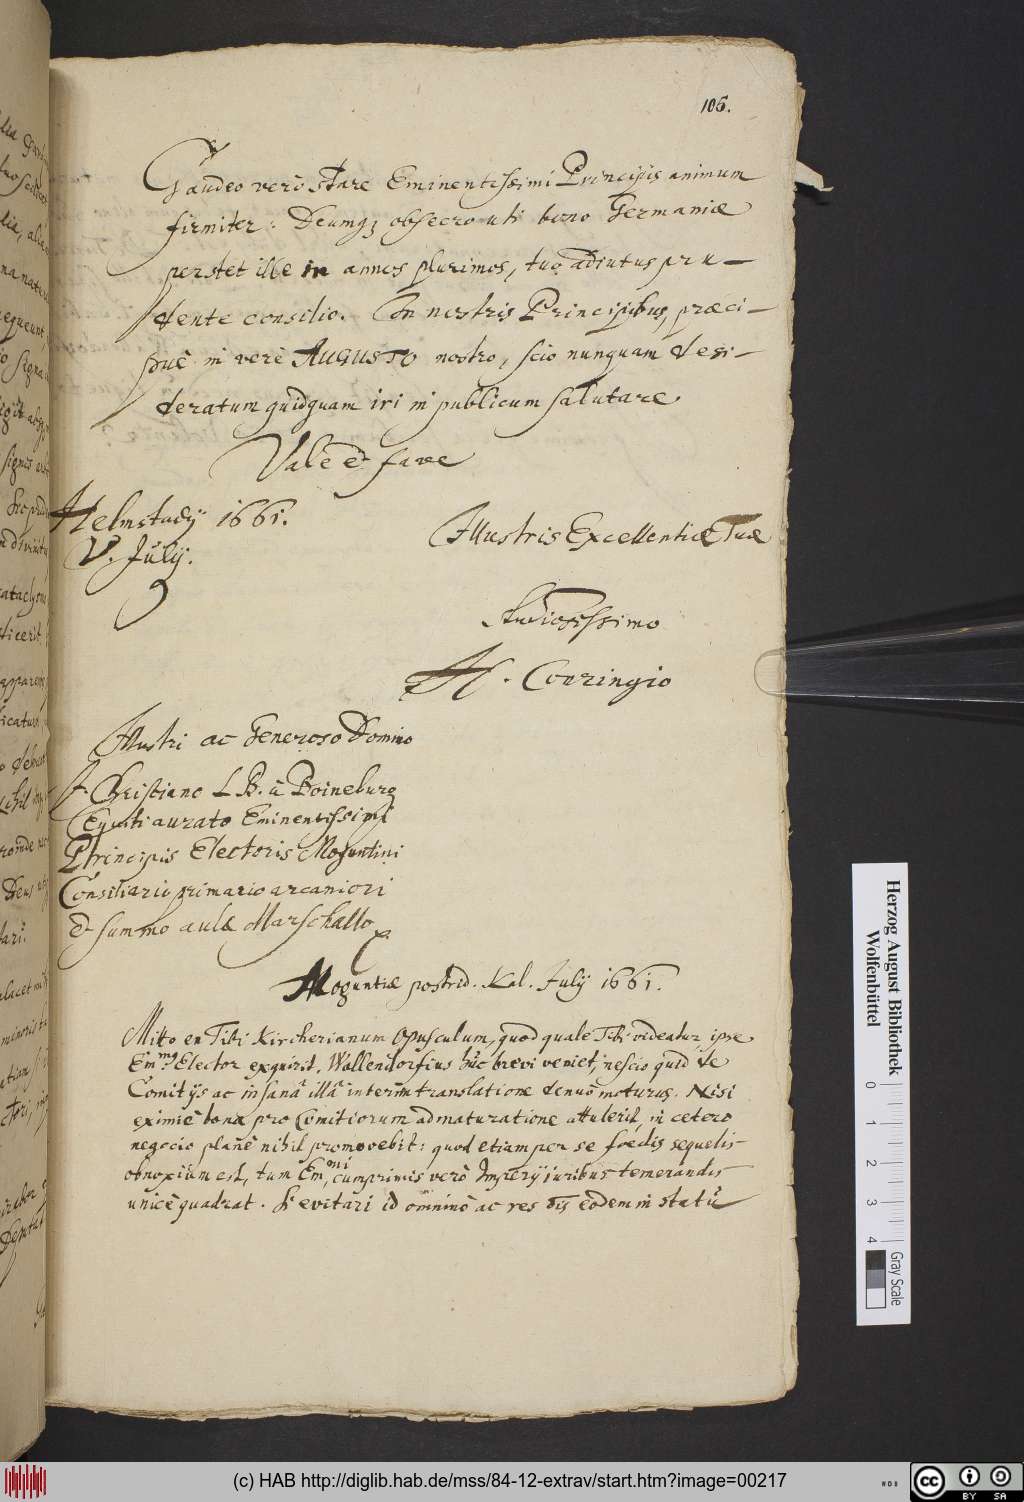 106.
Gaudeo verò stare Eminentissimi Principis animum
firmiter: Deumq; obsecro uti bono Germaniæ
perstet ille in annos plurimos, tuo adiutus pru-
dente consilio. In nostris Principibus, præci-
puè in verè AUGUSTO nostro, scio nunquam desi-
deratum quidquam iri in publicum salutare
Vale et fave
Helmstadij 1661.
V. Julij.
Illustris Excellentiæ Tuæ
Studiosissimo
H. Conringio
Illustri ac Generoso Domino
J. Christiano L. B. à Boineburg
Equiti aurato Eminentissimi
Principis Electoris Moguntini
Consiliario primario arcaniori
et summo aulæ Marschallo
Moguntiæ postrid. Kal. July 1661.
Mitto en Tibi Kircherianum Opusculum, quod quale Tibi videatur ipse
Em.mus Elector exquirit. Wallendorfius huc brevi veniet, nescio quid de
Comitijs ac insanâ illâ interim translatione denuò moturus. Nisi
eximiè bona pro Comitiorum admaturatione attulerit, in cetero
negocio planè nihil promovebit: quod etiam per se foedis sequelis
obnoxium est, tum Em.mi, cumprimis verò Imperij iuribus temerandis
unicè quadrat. Si evitari id omninò ac res eodem in statu
Herzog August Bibliothek
Wolfenbüttel
0 1 2 3 4
Gray Scale
(c) HAB http://diglib.hab.de/mss/84-12-extrav/start.htm?image=00217
cc BY SA